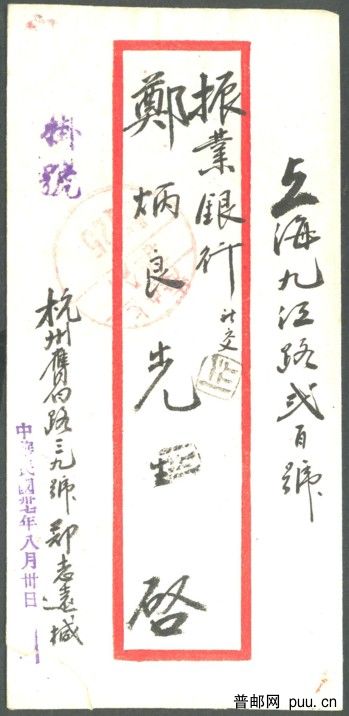 上海九江路弍百號
振業銀行
鄭炳良先生 啓
掛號
杭州膺白路三九號鄭志遠緘
中華民國卅七年八月卅日
普邮网 puu.cn